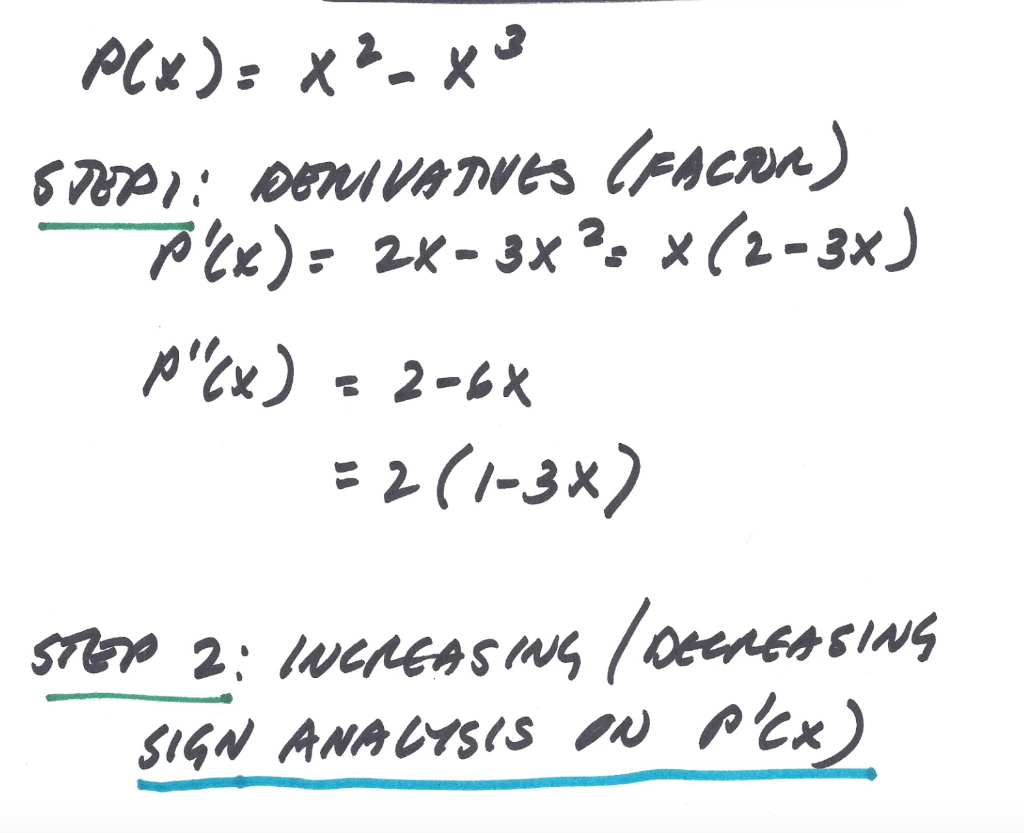 P(x) = x² - x³
STEP 1: DERIVATIVES (FACTOR)
P'(x) = 2x - 3x² = x(2 - 3x)
P''(x) = 2 - 6x
= 2(1 - 3x)
STEP 2: INCREASING / DECREASING
SIGN ANALYSIS ON P'(x)